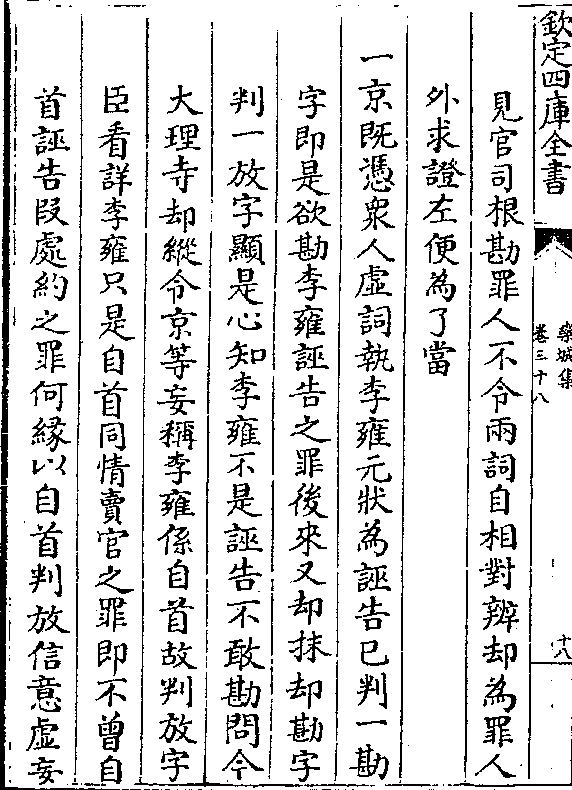 欽定四庫全書
欒城集
卷三十八
十八
見官司根勘罪人不令兩詞自相對辨却為罪人
外求證左便為了當
一京既憑衆人虛詞執李雍元狀為誣告已判一勘
字即是欲勘李雍誣告之罪後來又却抹却勘字
判一放字顯是心知李雍不是誣告不敢勘問今
大理寺却縱令京等妄稱李雍係自首故判放字
臣看詳李雍只是自首同情賣官之罪即不曾自
首誣告段處約之罪何緣以自首判放信意虛妄